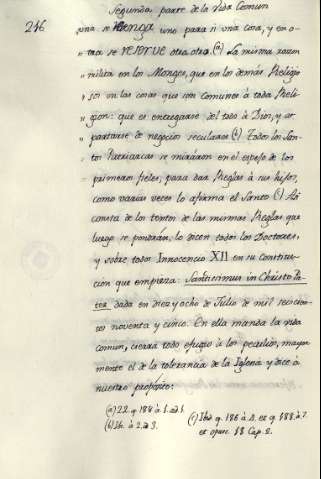 246
Segunda parte de la Vida Comun
una se tenga uno para si una cosa, y en o-
tra se reserve otra otro. (a) La misma razon
milita en los Monges, que en los demás Religio
sos en las cosas que son comunes á toda Reli-
gion: que es entregarse del todo à Dios, y ap
partarse de negocios seculares (b) Todos los San-
tos Patriarcas se miraron en el espejo de los
primeros fieles, para dar Reglas à sus hijos,
como varias veces lo afirma el Santo (c) Asi
consta de los textos de las mismas Reglas, que
luego se pondrán, lo dicen todos los Doctores,
y sobre todos Innocencio XII en su constitu-
ción que empieza: Santissimus in Christo Pa-
ter dada en diez y ocho de Julio de mil seiscien-
tos noventa y cinco. En ella manda la vida
comun, cierra todo efugio à los peculios, mayor
mente el de la tolerancia de la Iglesia y dice à
nuestro proposito:
(a) 22. q. 188 à 8. ad 1.
(b) Ib. à 2. ad 3.
(c) Ibid q. 186 à 4. et q. 188. à 7.
et opusc. 18 Cap. 2.